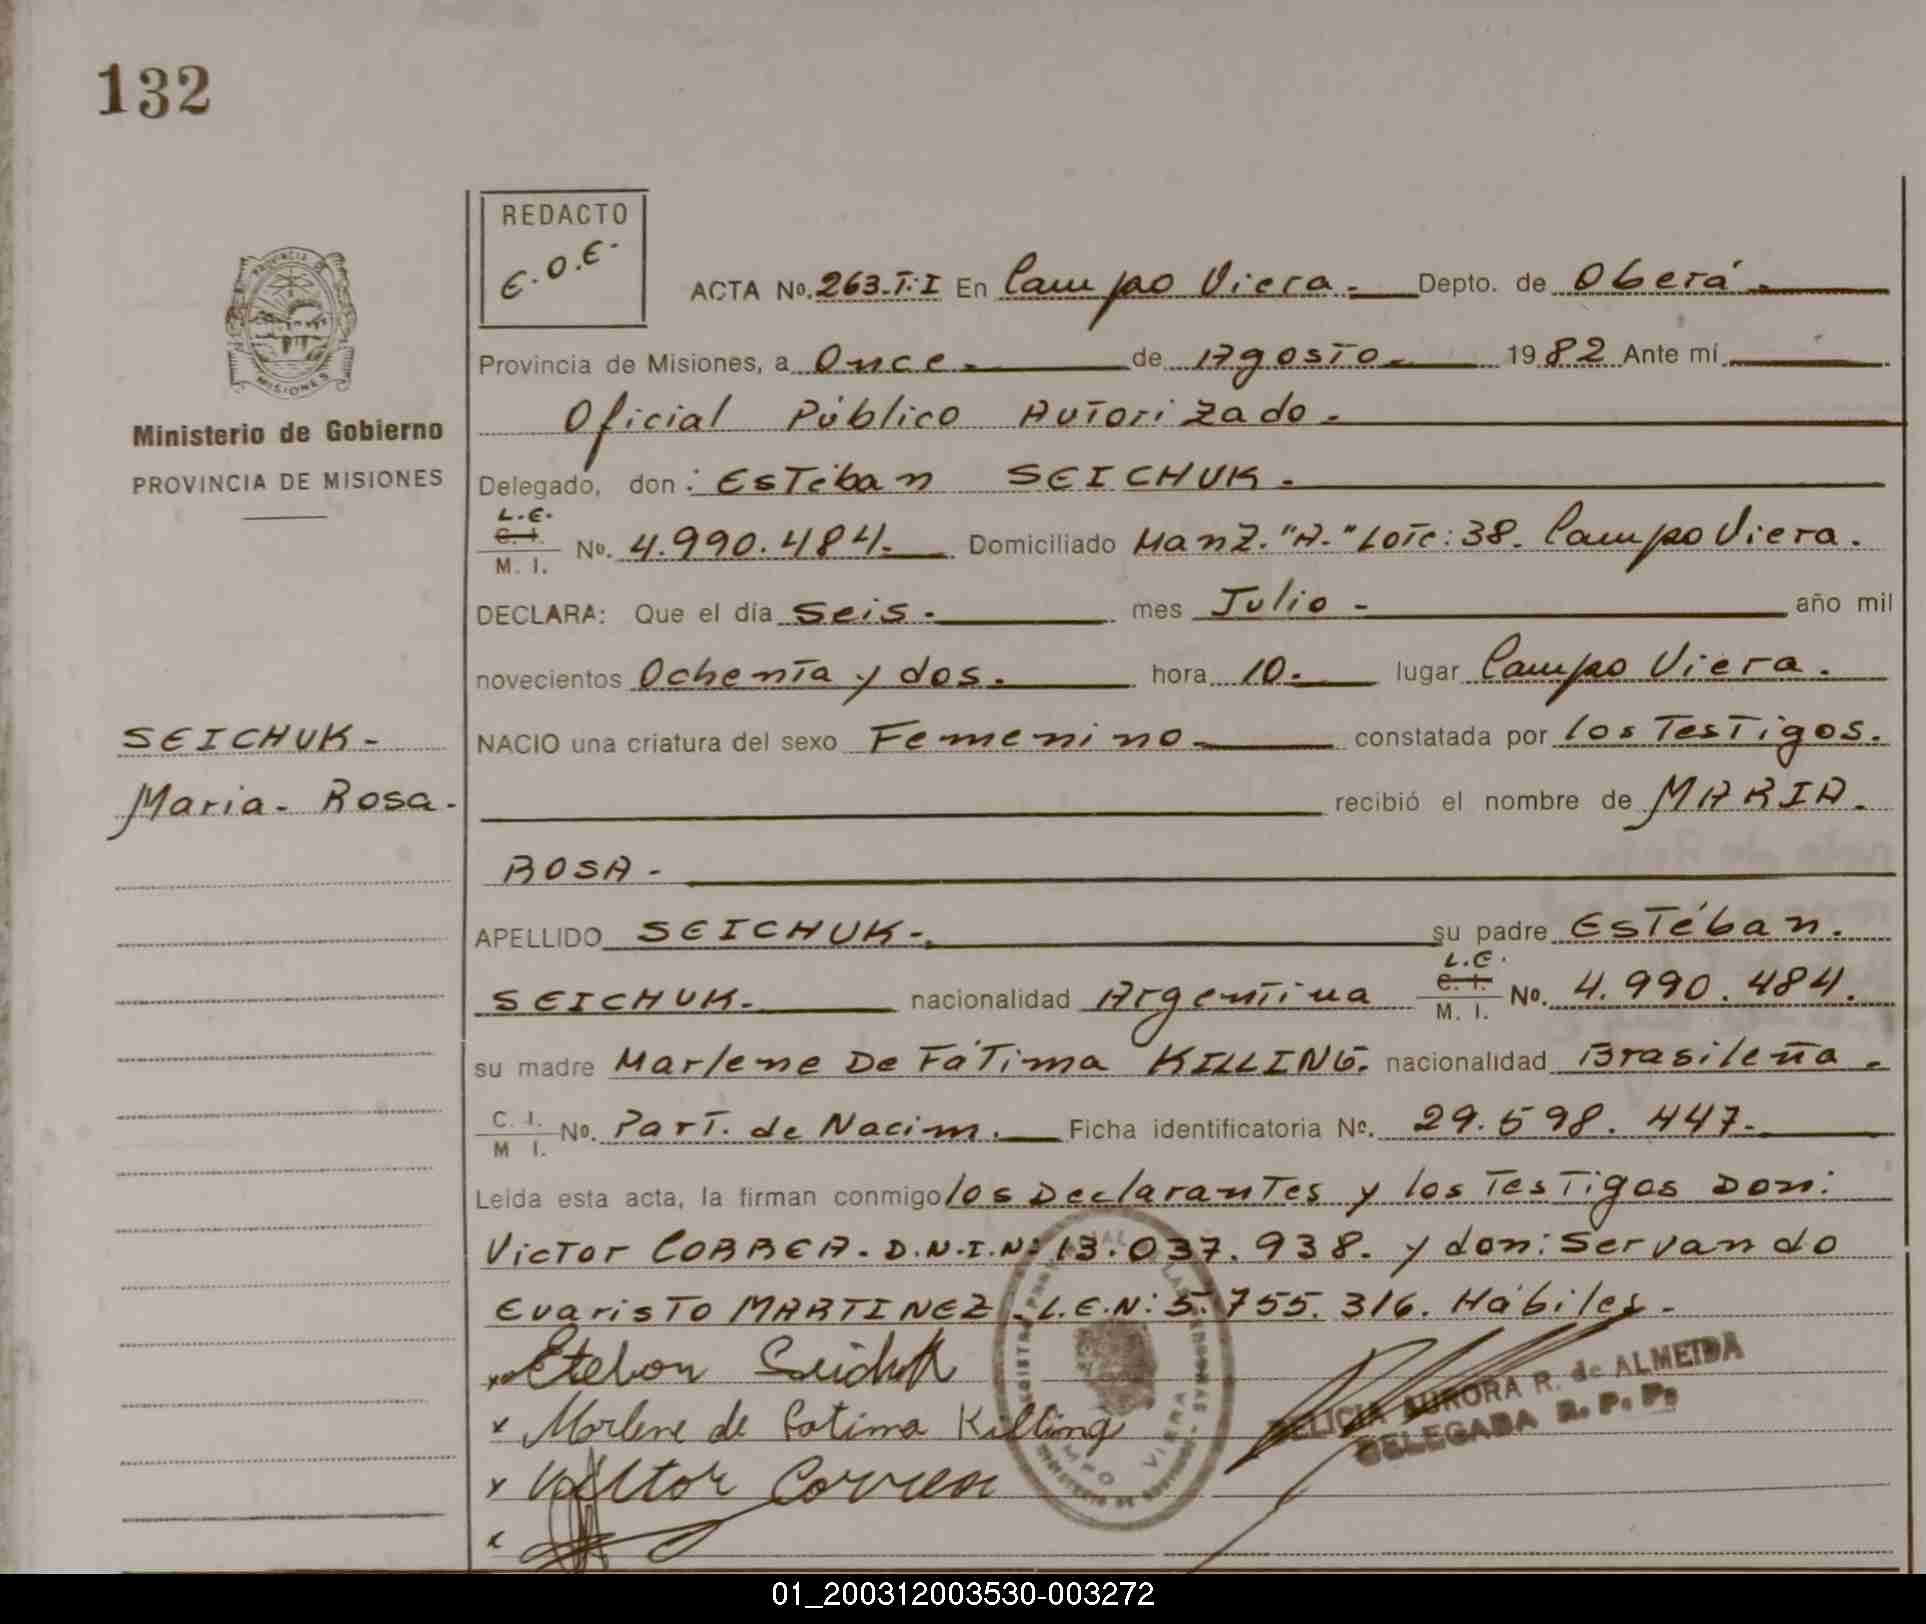 132
REDACTO
E.O.E.
PROVINCIA DE
MISIONES
Ministerio de Gobierno
PROVINCIA DE MISIONES
SEICHUK-
Maria- Rosa.
ACTA No. 263.T:I En Campo Viera. Depto. de Oberá.
Provincia de Misiones, a Once. de Agosto. 1982 Ante mí
Oficial Público Autorizado.
Delegado, don: Estéban SEICHUK.
L.E.
C. I.
M. I. No. 4.990.484. Domiciliado Manz."A." Lote:38. Campo Viera.
DECLARA: Que el día Seis. mes Julio - año mil
novecientos Ochenta y dos. hora 10. lugar Campo Viera.
NACIO una criatura del sexo Femenino. constatada por los Testigos.
recibió el nombre de MARIA.
ROSA -
APELLIDO SEICHUK. su padre Estéban.
SEICHUK. nacionalidad Argentina L.E. C. I. M. I. No. 4.990.484.
su madre Marlene De Fátima KILLING. nacionalidad Brasileña.
C. I. M I. No. Part. de Nacim. Ficha identificatoria No. 29.598.447.
Leída esta acta, la firman conmigo los Declarantes y los Testigos Don:
Victor CORREA. D.N.I.Nº 13.037.938. y don: Servando
Evaristo MARTINEZ. L.E.N: 5.755.316. Hábiles.
x Esteban Seichuk
x Marlene de Fatima Killing
x Victor Correa
x
DELICIA AURORA R. de ALMEIDA
DELEGADA R. P. P.
VIERA
01_200312003530-003272